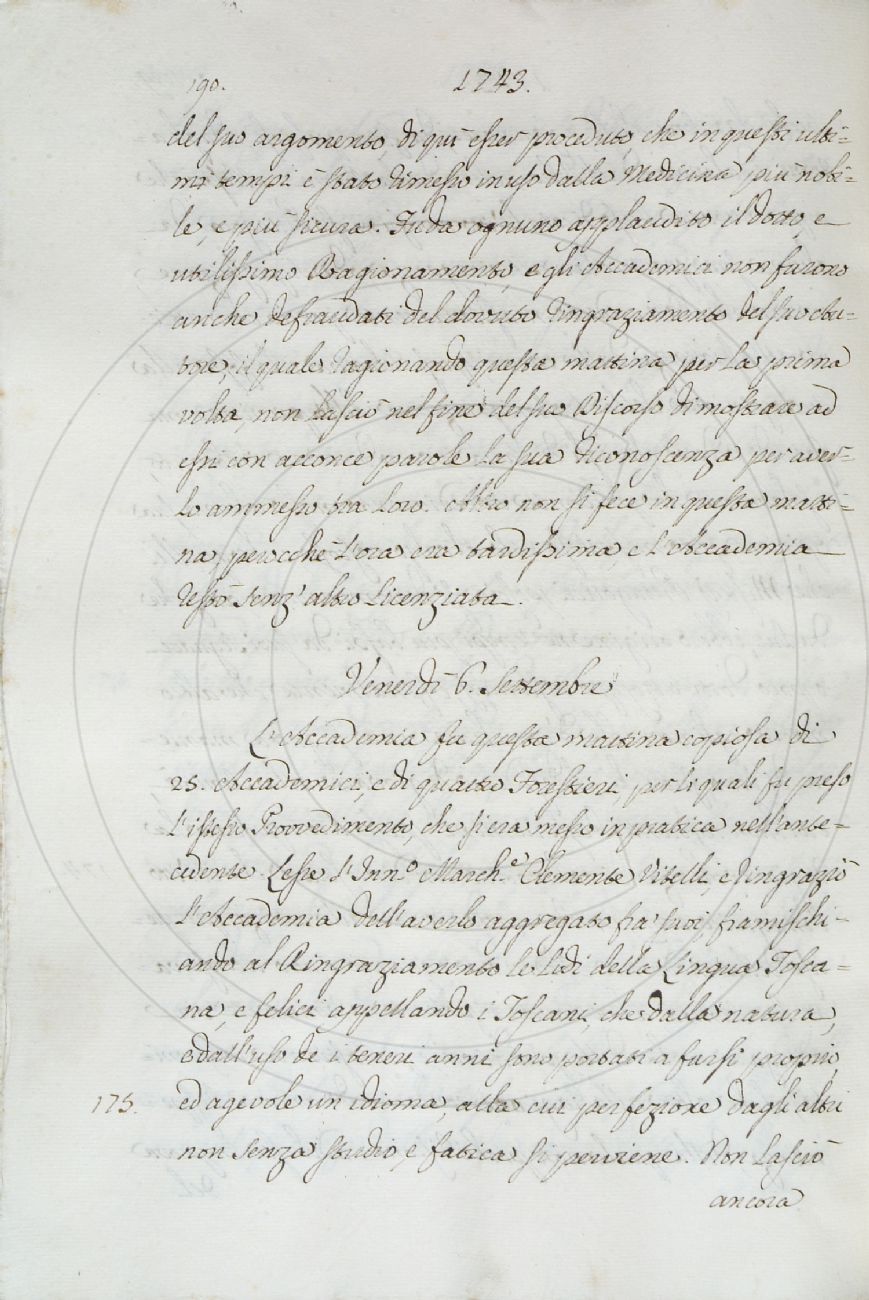 190. 1743.
del suo argomento, di quì esser proceduto, che in questi ulti=
mi tempi è stato dimesso in uso dalla Medicina più nobi=
le, e più sicura. Fu da ognuno applaudito il dotto, e
utilissimo Ragionamento, e gli Accademici non furono
anche defraudati del dovuto ringraziamento del suo Au=
tore, il quale ragionando questa mattina per la prima
volta, non lasciò nel fine del suo Discorso di mostrare ad
essi con acconce parole la sua riconoscenza per aver=
lo ammesso tra loro. Altro non si fece in questa matti=
na, perocchè l'ora era tardissima, e l'Accademia
restò senz' altro licenziata.
Venerdì 6. Settembre
L'Accademia fu questa mattina copiosa di
25. Accademici, e di quattro Forestieri, per li quali fu preso
l'istesso Provvedimento, che si era messo in pratica nell'ante=
cedente. Lesse l'Inn.º March.e Clemente Vitelli, e ringraziò
l'Accademia dell'averlo aggregato fra' suoi, framischi=
ando al Ringraziamento le lodi della Lingua Tosca=
na, e felici appellando i Toscani, che dalla natura,
e dall'uso de i teneri anni sono portati a farsi proprio,
175. ed agevole un idioma, alla cui perfezione dagli altri
non senza studio, e fatica si perviene. Non lasciò
ancora